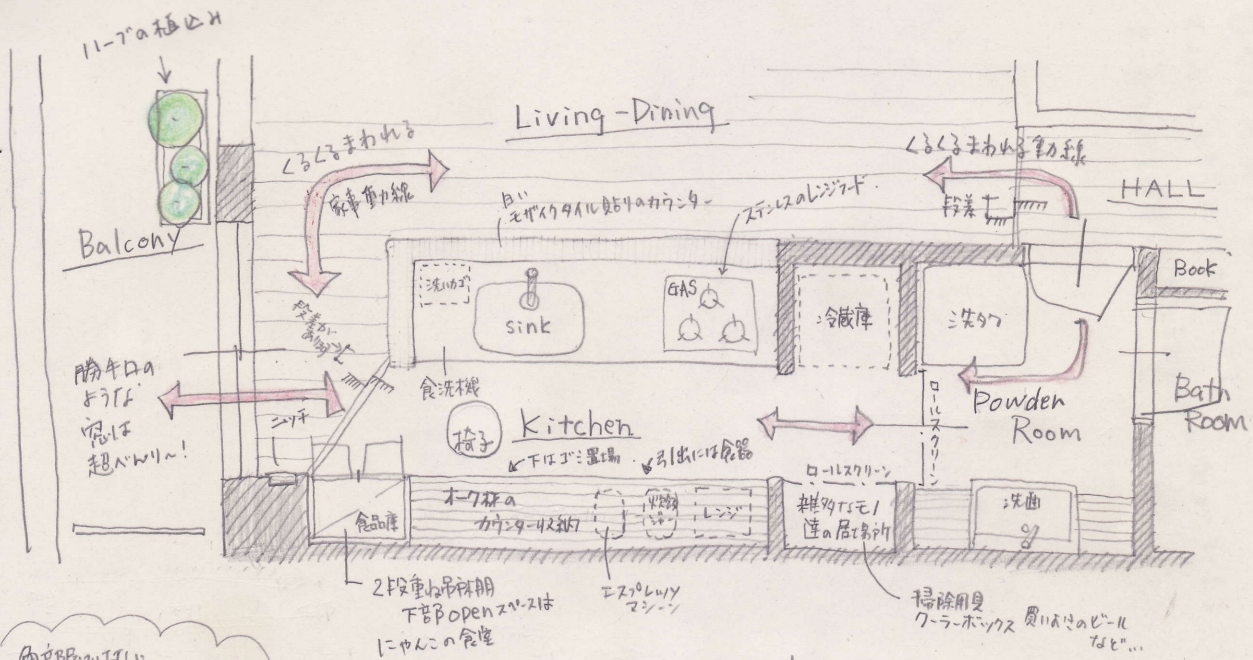 ハーブの植込み
Living-Dining
くるくるまわれる
家事動線
くるくるまわれる動線
HALL
段差
白い
モザイクタイル貼りのカウンター
ステンレスのレンジフード
Balcony
Book
洗いカゴ
sink
GAS
冷蔵庫
洗タク
段差が
あります
勝手口の
ような
窓は
超べんり〜!
ニッチ
食洗機
椅子
Kitchen
ロールスクリーン
Powder
Room
Bath
Room
下はゴミ置場
引出には食器
ロールスクリーン
食品庫
オーク材の
カウンター収納
炊飯
ジャー
レンジ
雑多なモノ
達の居場所
洗面
2段重ね吊戸棚
下部openスペースは
にゃんこの食堂
エスプレッソ
マシーン
掃除用具
クーラーボックス 買いおきのビール
など...